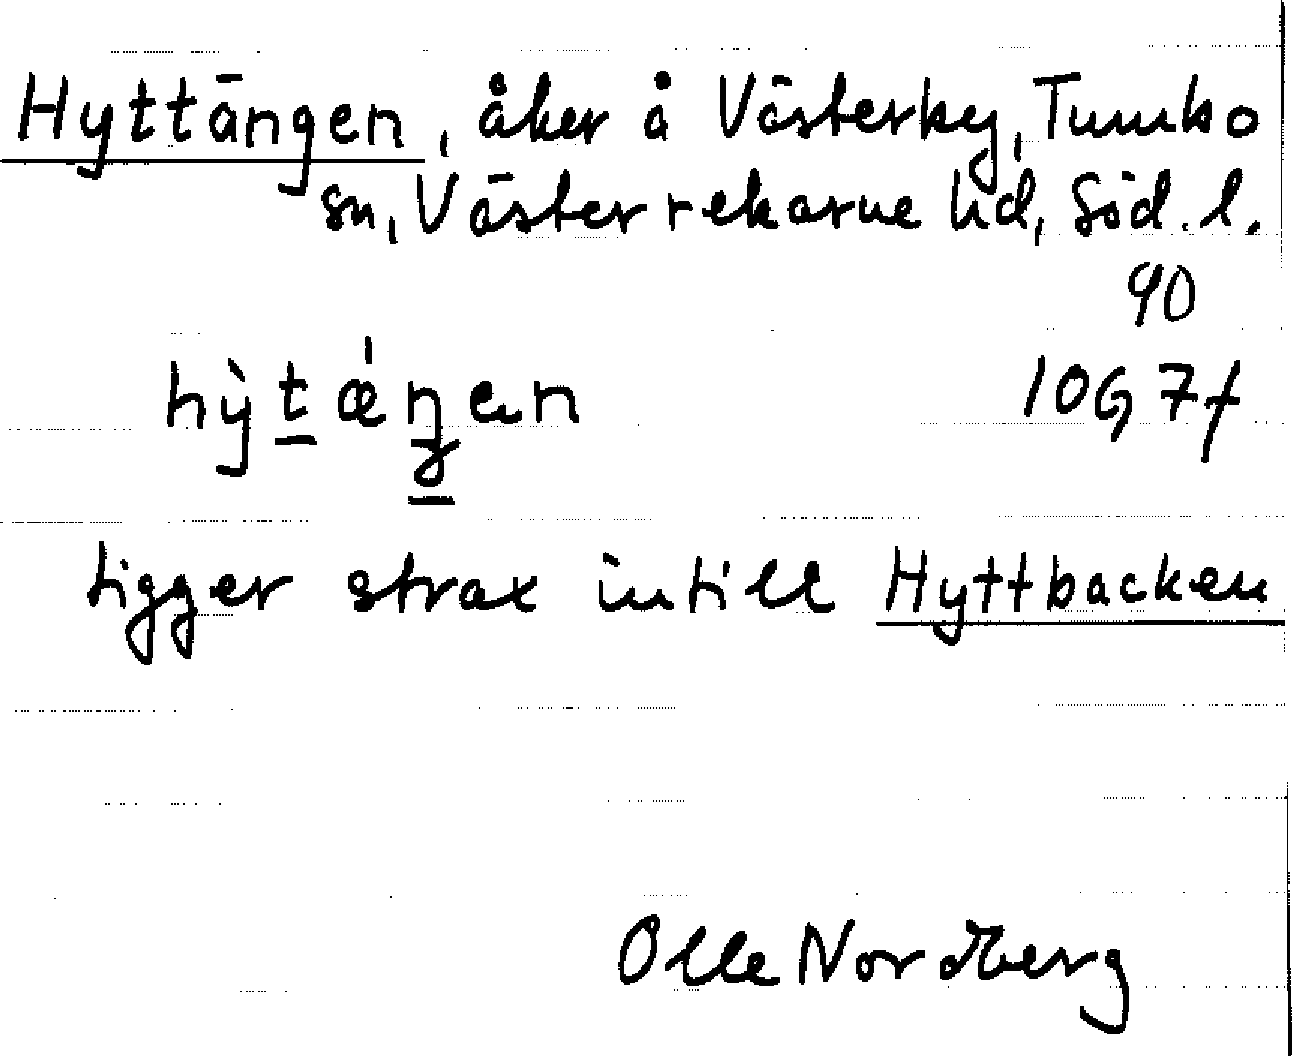 Hyttängen, åker å Västerby, Tumbo
sn, Västerrekarne hd, Söd. l.
90
hỳt̲ǽŋen
10G 7f
Ligger strax intill Hyttbacken
Olle Nordberg